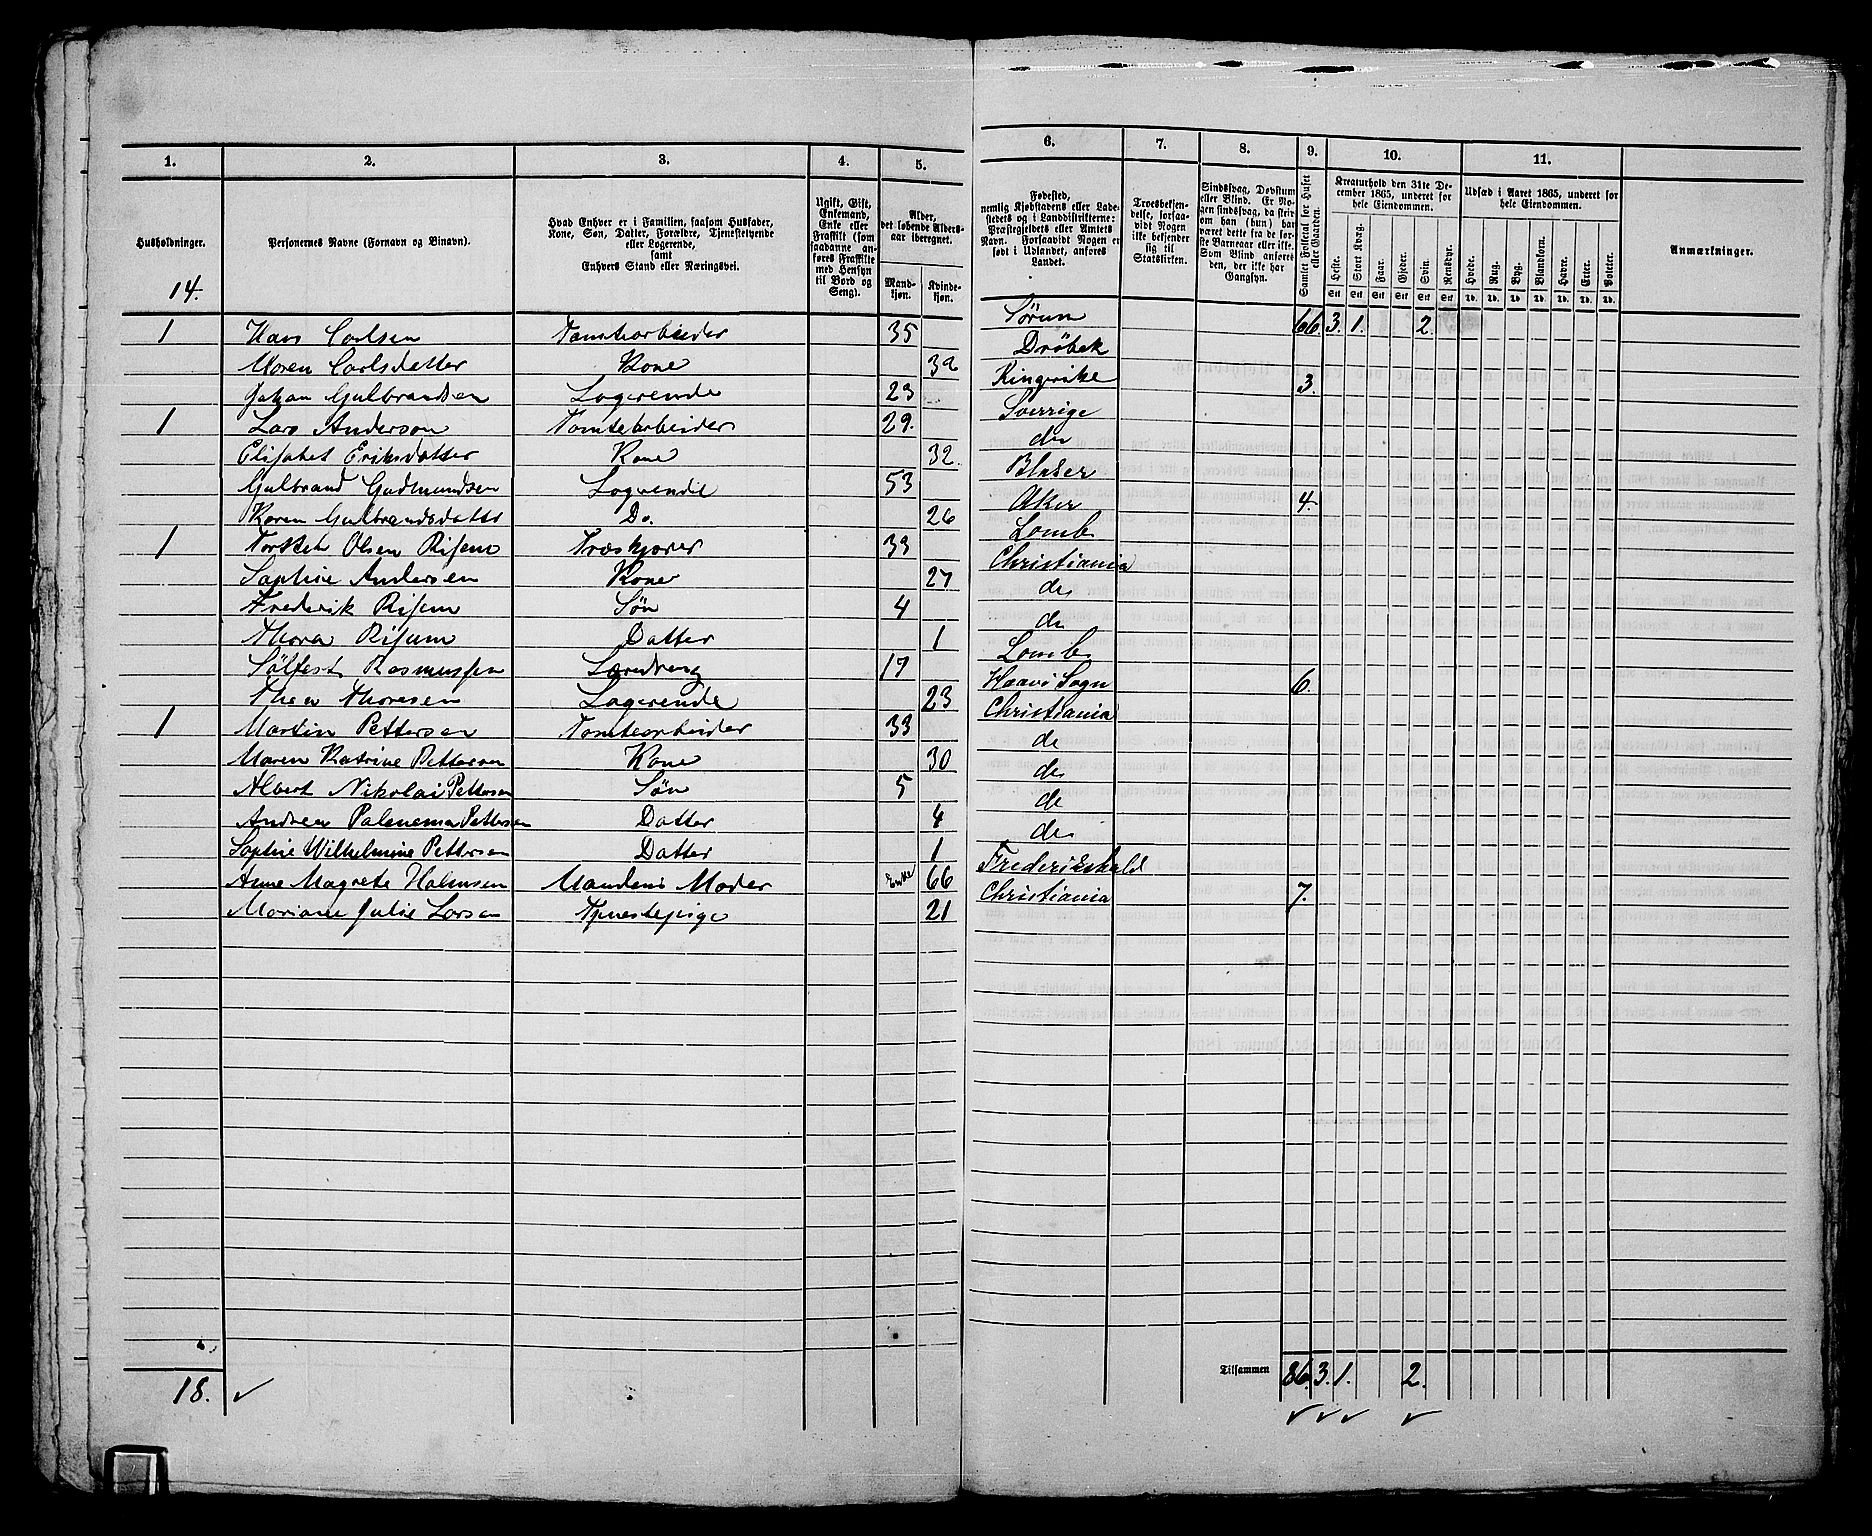 1. 2. 3. 4. 5. 6. 7. 8. 9. 10. 11.
Husholdninger.
14.
Personernes Navne (Fornavn og Binavn).
Hvad Enhver er i Familien, saasom Husfader,
Kone, Søn, Datter, Forældre, Tjenestetyende
eller Logerende,
samt
Enhvers Stand eller Næringsvei.
Ugift, Gift,
Enkemand,
Enke eller
Fraskilt (som
saadanne an-
føres Fraskilte
med Hensyn
til Bord og
Seng).
Alder,
det løbende Alders-
aar iberegnet.
Mand-
kjøn.
Kvinde-
kjøn.
Fødested,
nemlig Kjøbstadens eller Lade-
stedets og i Landdistrikterne:
Præstegjeldets eller Amtets
Navn. Forsaavidt Nogen er
født i Udlandet, anføres
Landet.
Troesbekjen-
delse, forsaa-
vidt Nogen
ikke bekjender
sig til
Statskirken.
Sindssvag, Døvstum
eller Blind. Er No-
gen sindssvag, da skriv
om han (hun) har
været dette fra de før-
ste Barneaar eller ikke.
Som Blind anføres
den, der ikke har
Gangsyn.
Samlet Folketal for Huset
eller Gaarden.
Kreaturhold den 31te De-
cember 1865, underet for
hele Eiendommen.
Heste. Stort Kvæg. Faar. Gjeder. Svin. Rensdyr.
Stk Stk Stk Stk Stk Stk
Udsæd i Aaret 1865, underet for
hele Eiendommen.
Hvede. Rug. Byg. Blandkorn. Havre. Erter. Poteter.
Td. Td. Td. Td. Td. Td. Td.
Anmærkninger.
1 Hans Carlsen Tomtearbeider 35 Sørum 66. 3. 1. 2.
Maren Carlsdatter Kone Drøbak
Johan Gulbrandsen Logerende 23 Ringerike 3.
1 Lars Anderson Tomtearbeider 29. Sverrige
Elisabet Eriksdatter Kone 32. do
Gulbrand Gudmundsen Logerende 53
Karen Gulbrandsdatter Do. 26 Aker 4.
1 Olsen Risem Træskjærer 33 Lomb
Sophie Andersen Kone 27 Christiania
Frederik Risem Søn 4 do
Thora Risum Datter 1 do
Sølfest Rasmussen Læredreng 17 Lomb
Thea Thoresen Logerende 23 6.
1 Martin Pettersen Tomtearbeider 33 Christiania
Maren Katrine Pettersen Kone 30 do
Albert Nikolai Pettersen Søn 5 do
Andrea Pettersen Datter 4 do
Sophie Wilhelmine Pettersen Datter 1 do
Anne Magrete Halmsen Mandens Moder Enke 66 Frederikshald
Mariane Julie Larsen Tjenestepige 21 Christiania 7.
Tilsammen 86. 3. 1. 2.
18.